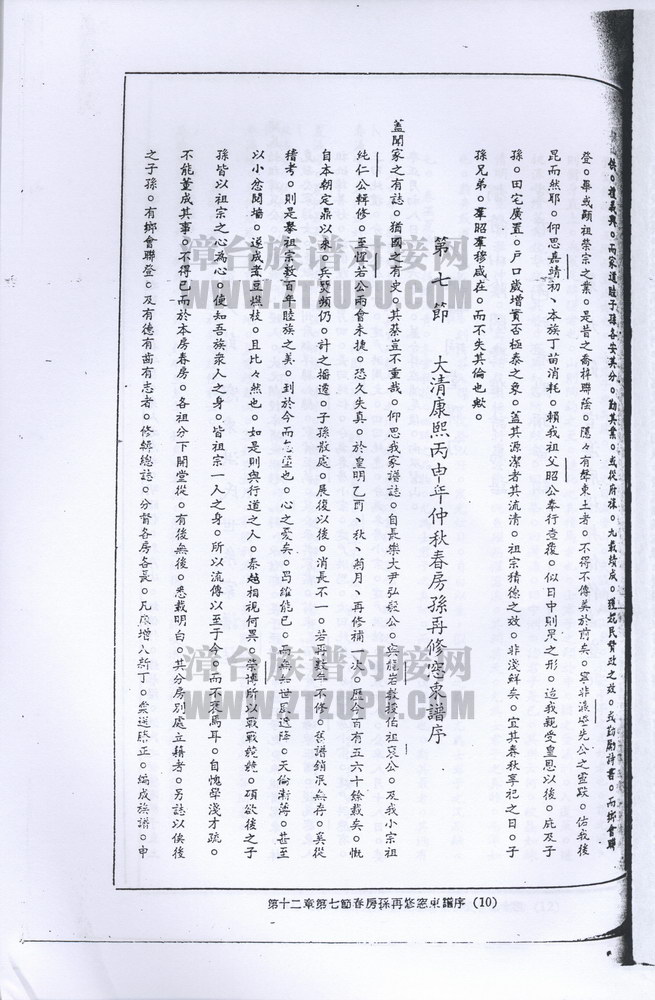 而家道睦子孫各安其分。勤其業。或從所禄。九載績成。
登。畢或顯祖榮宗之業。是昔之喬梓聯蔭。隱々有聲東土者。不得不傳美於前矣。寧非先公之靈。佑我後
昆而然耶。仰思嘉靖初、本族丁苗消耗。賴我祖父昭公奉行。似日中則昃之形。迨我親受皇恩以後。庇及子
孫。田宅廣置。戶口歲增。實否極泰之象。蓋其源潔者其流清。祖宗積德之效。非淺鮮矣。宜其春秋享祀之日。子
孫兄弟。羣昭羣穆咸在。而不失其倫也歟。
第七節 大清康熙丙申年仲秋春房孫再修窓東譜序
蓋聞家之有誌。猶國之有史。其系豈不重哉。仰思我家譜誌。自長樂大尹弘毅公。岩教授伯祖公。及我小宗祖
純仁公輯修。至惺若公兩會未捷。恐久失真。於皇明乙酉、秋、菊月、再修補一次。歷今百有五六十餘載矣。慨
自本朝定鼎以來。兵燹頻仍。計之播遷。子孫散處。展復以後。消長不一。若再數年不修。舊譜銷泯無存。奚從
稽考。則是舉祖宗數百年睦族之美。到於今而也。心之憂矣。曷維能已。而無知世風迭降。天倫漸薄。甚至
以小忿鬩墻。遂成煮豆燃枝。且比々然也。如是則與行道之人。秦越相視何異。崇博所以戰戰兢兢。碩欲後之子
孫皆以祖宗之心為心。使知吾族衆人之身。皆祖宗一人之身。所以流傳以至于今。而不衰焉耳。自愧學淺才疏。
不能董成其事。不得已而於本房春房。各祖分下開堂從。有後無後。悉載明白。其分房別處立籍者。另誌以俟後
之子孫。有鄉會聯登。及有德有齒有志者。修輯總誌。分督各房各長。凡增入新丁。正。編成族譜。申
第十二章第七節春房孫再修窓東譜序 (10)
漳台族谱对接网
WWW.ZTZUPU.COM
漳台族谱对接网
WWW.ZTZUPU.COM